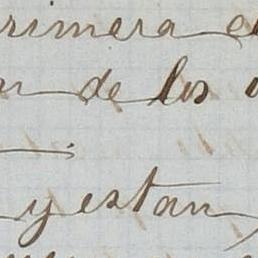 rimera
de los
y estan